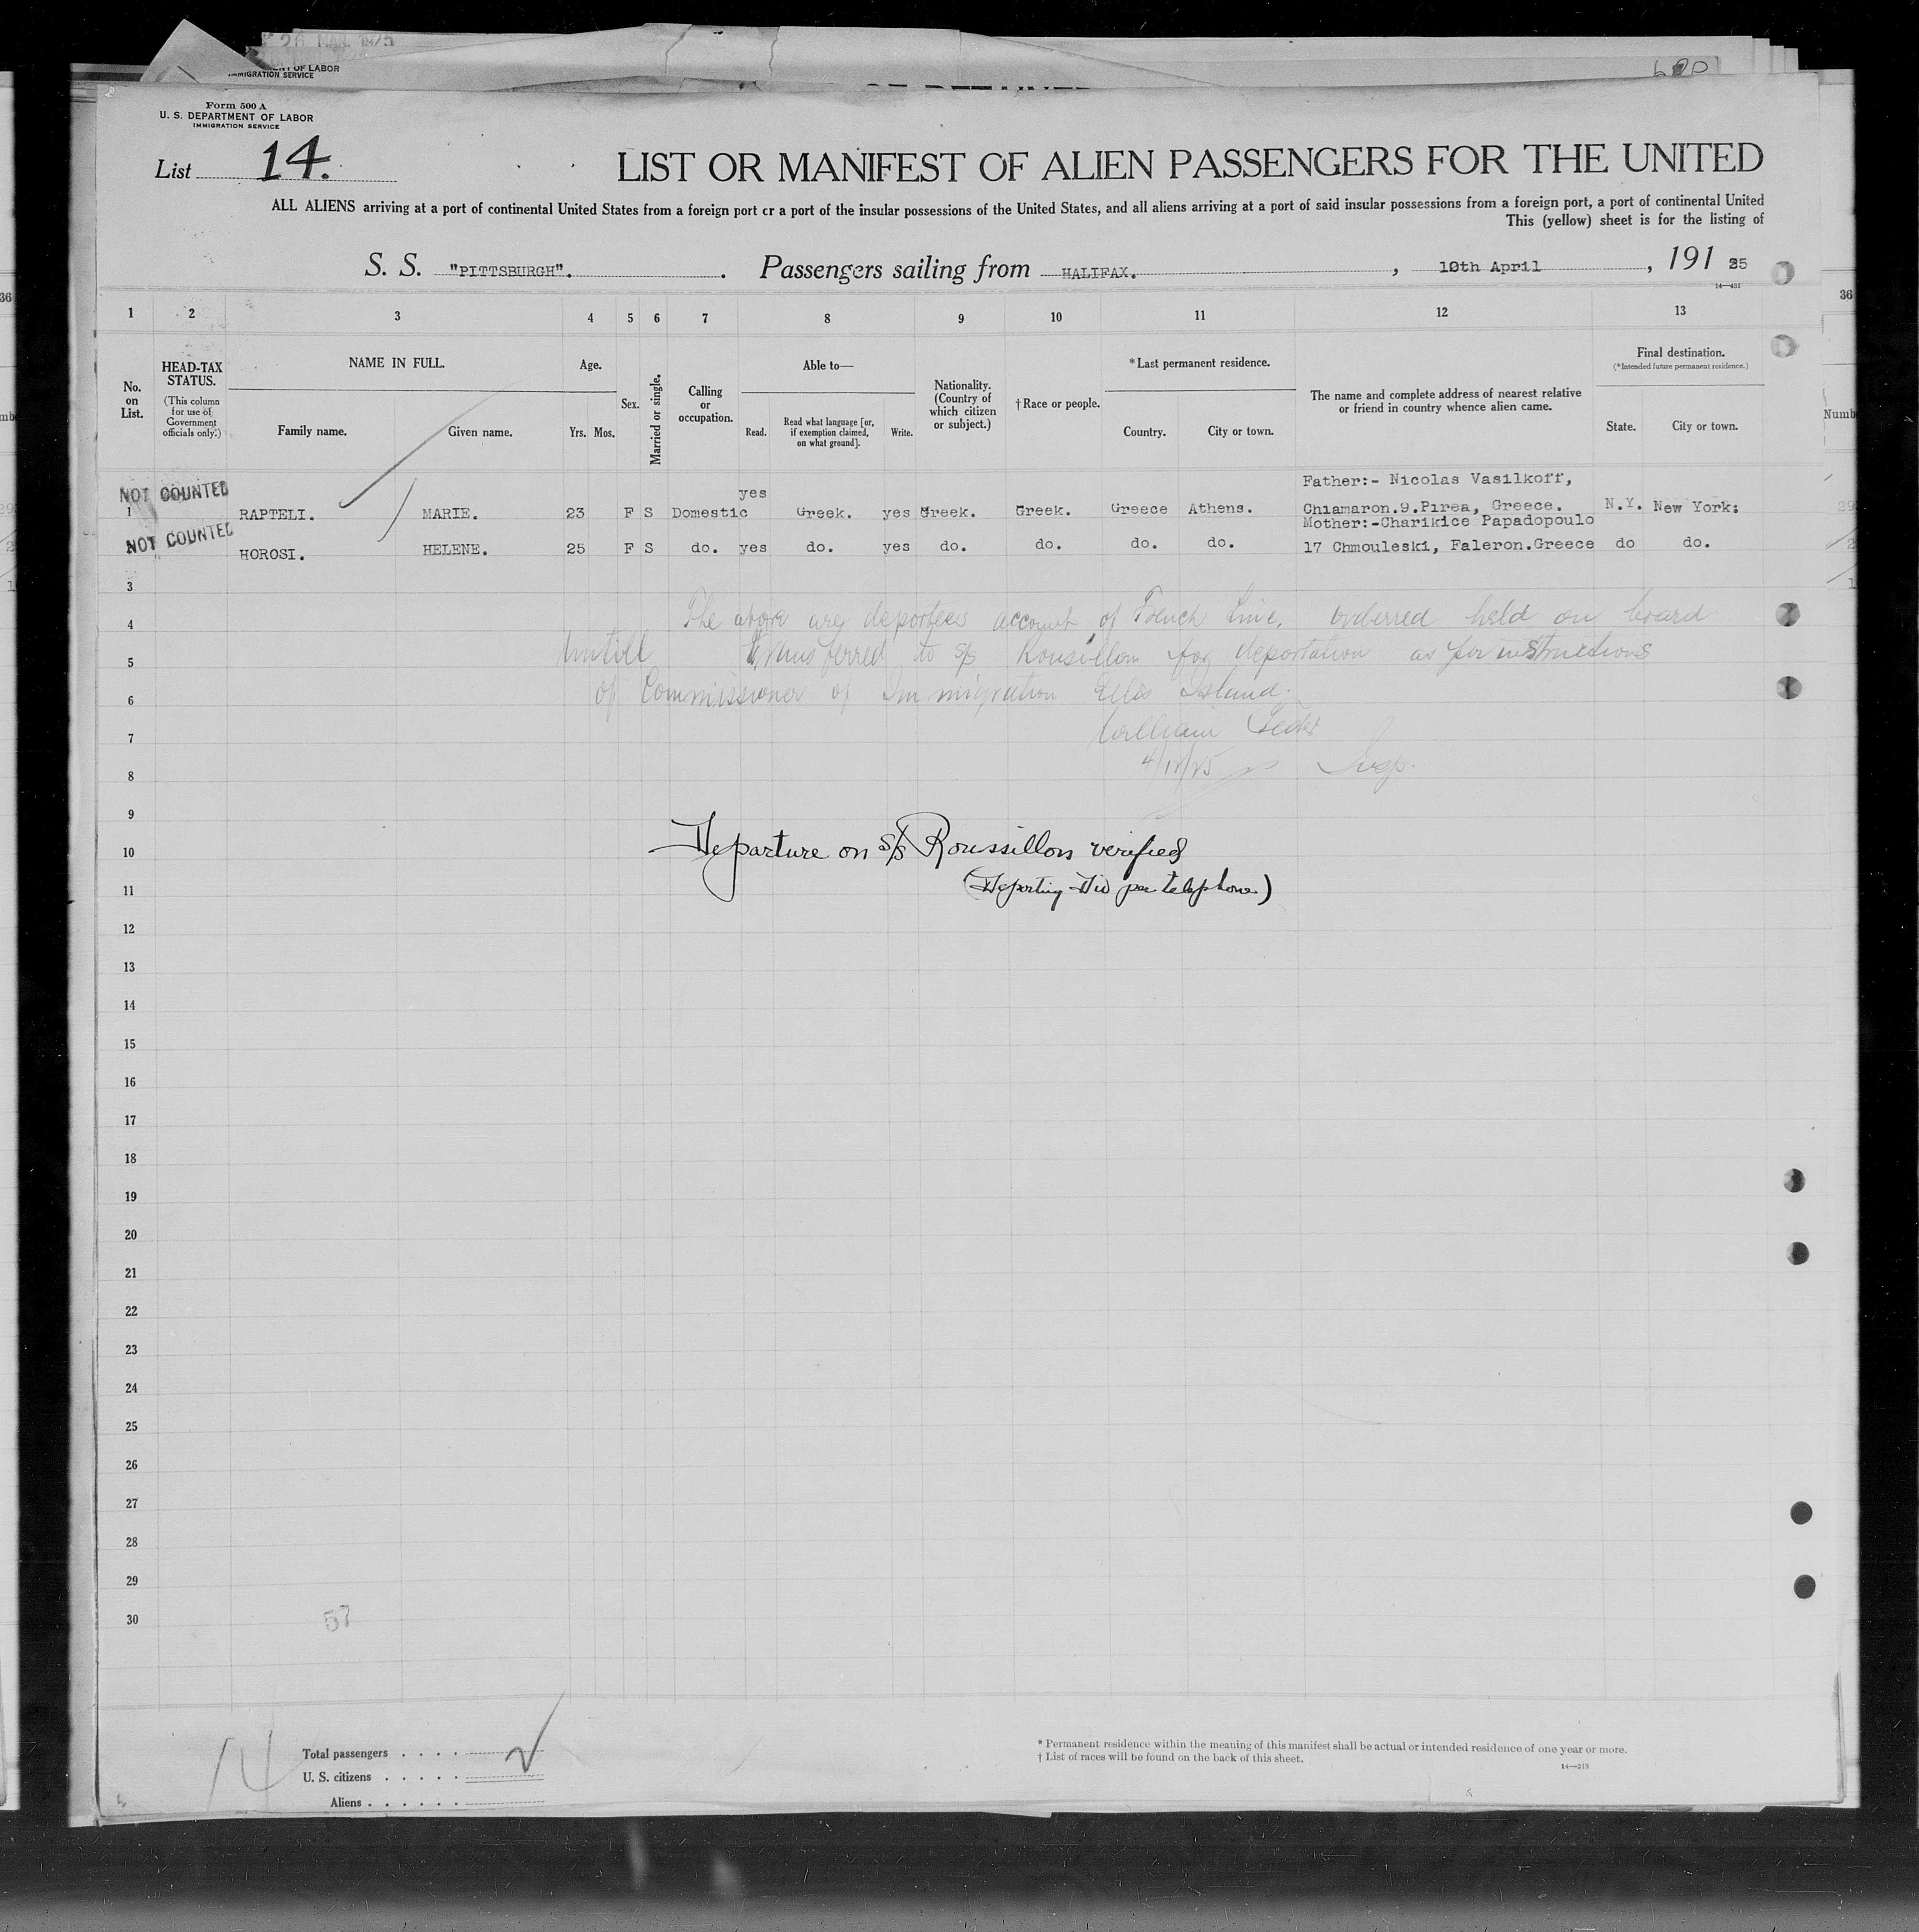 26 MAR. 1925
OF LABOR
IMMIGRATION SERVICE
Form 500 A
U. S. DEPARTMENT OF LABOR
IMMIGRATION SERVICE
List 14.
LIST OR MANIFEST OF ALIEN PASSENGERS FOR THE UNITED
ALL ALIENS arriving at a port of continental United States from a foreign port or a port of the insular possessions of the United States, and all aliens arriving at a port of said insular possessions from a foreign port, a port of continental United
This (yellow) sheet is for the listing of
S. S. "PITTSBURGH". Passengers sailing from HALIFAX. , 10th April , 191 25
14—431
1 2 3 4 5 6 7 8 9 10 11 12 13
36 36
No. on List.
HEAD-TAX STATUS.
(This column for use of Government officials only.)
NAME IN FULL.
Family name. Given name.
Age.
Yrs. Mos.
Sex.
Married or single.
Calling or occupation.
Able to—
Read. Read what language [or, if exemption claimed, on what ground]. Write.
Nationality. (Country of which citizen or subject.)
† Race or people.
* Last permanent residence.
Country. City or town.
The name and complete address of nearest relative or friend in country whence alien came.
Final destination.
(*Intended future permanent residence.)
State. City or town.
Numb
NOT COUNTED
Father:- Nicolas Vasilkoff,
1 RAPTELI. MARIE. 23 F S Domestic yes Greek. yes Greek. Greek. Greece Athens. Chiamaron.9.Pirea, Greece. N.Y. New York:
NOT COUNTED
Mother:-Charikice Papadopoulo
HOROSI. HELENE. 25 F S do. yes do. yes do. do. do. do. 17 Chmouleski, Faleron.Greece do do.
3
4 The above are deportees account of French Line. orderred held on board
5 untill transferred to s/s Rousillon for deportation as per instructions
6 of Commissioner of Immigration Ellis Island.
7 William
8 Insp.
9
10 Departure on s/s Roussillon verified
11 (Deporting Div per telephone)
12
13
14
15
16
17
18
19
20
21
22
23
24
25
26
27
28
29
30
57
14
Total passengers . . . .
U. S. citizens . . . . .
Aliens . . . . . .
* Permanent residence within the meaning of this manifest shall be actual or intended residence of one year or more.
† List of races will be found on the back of this sheet.
14—213